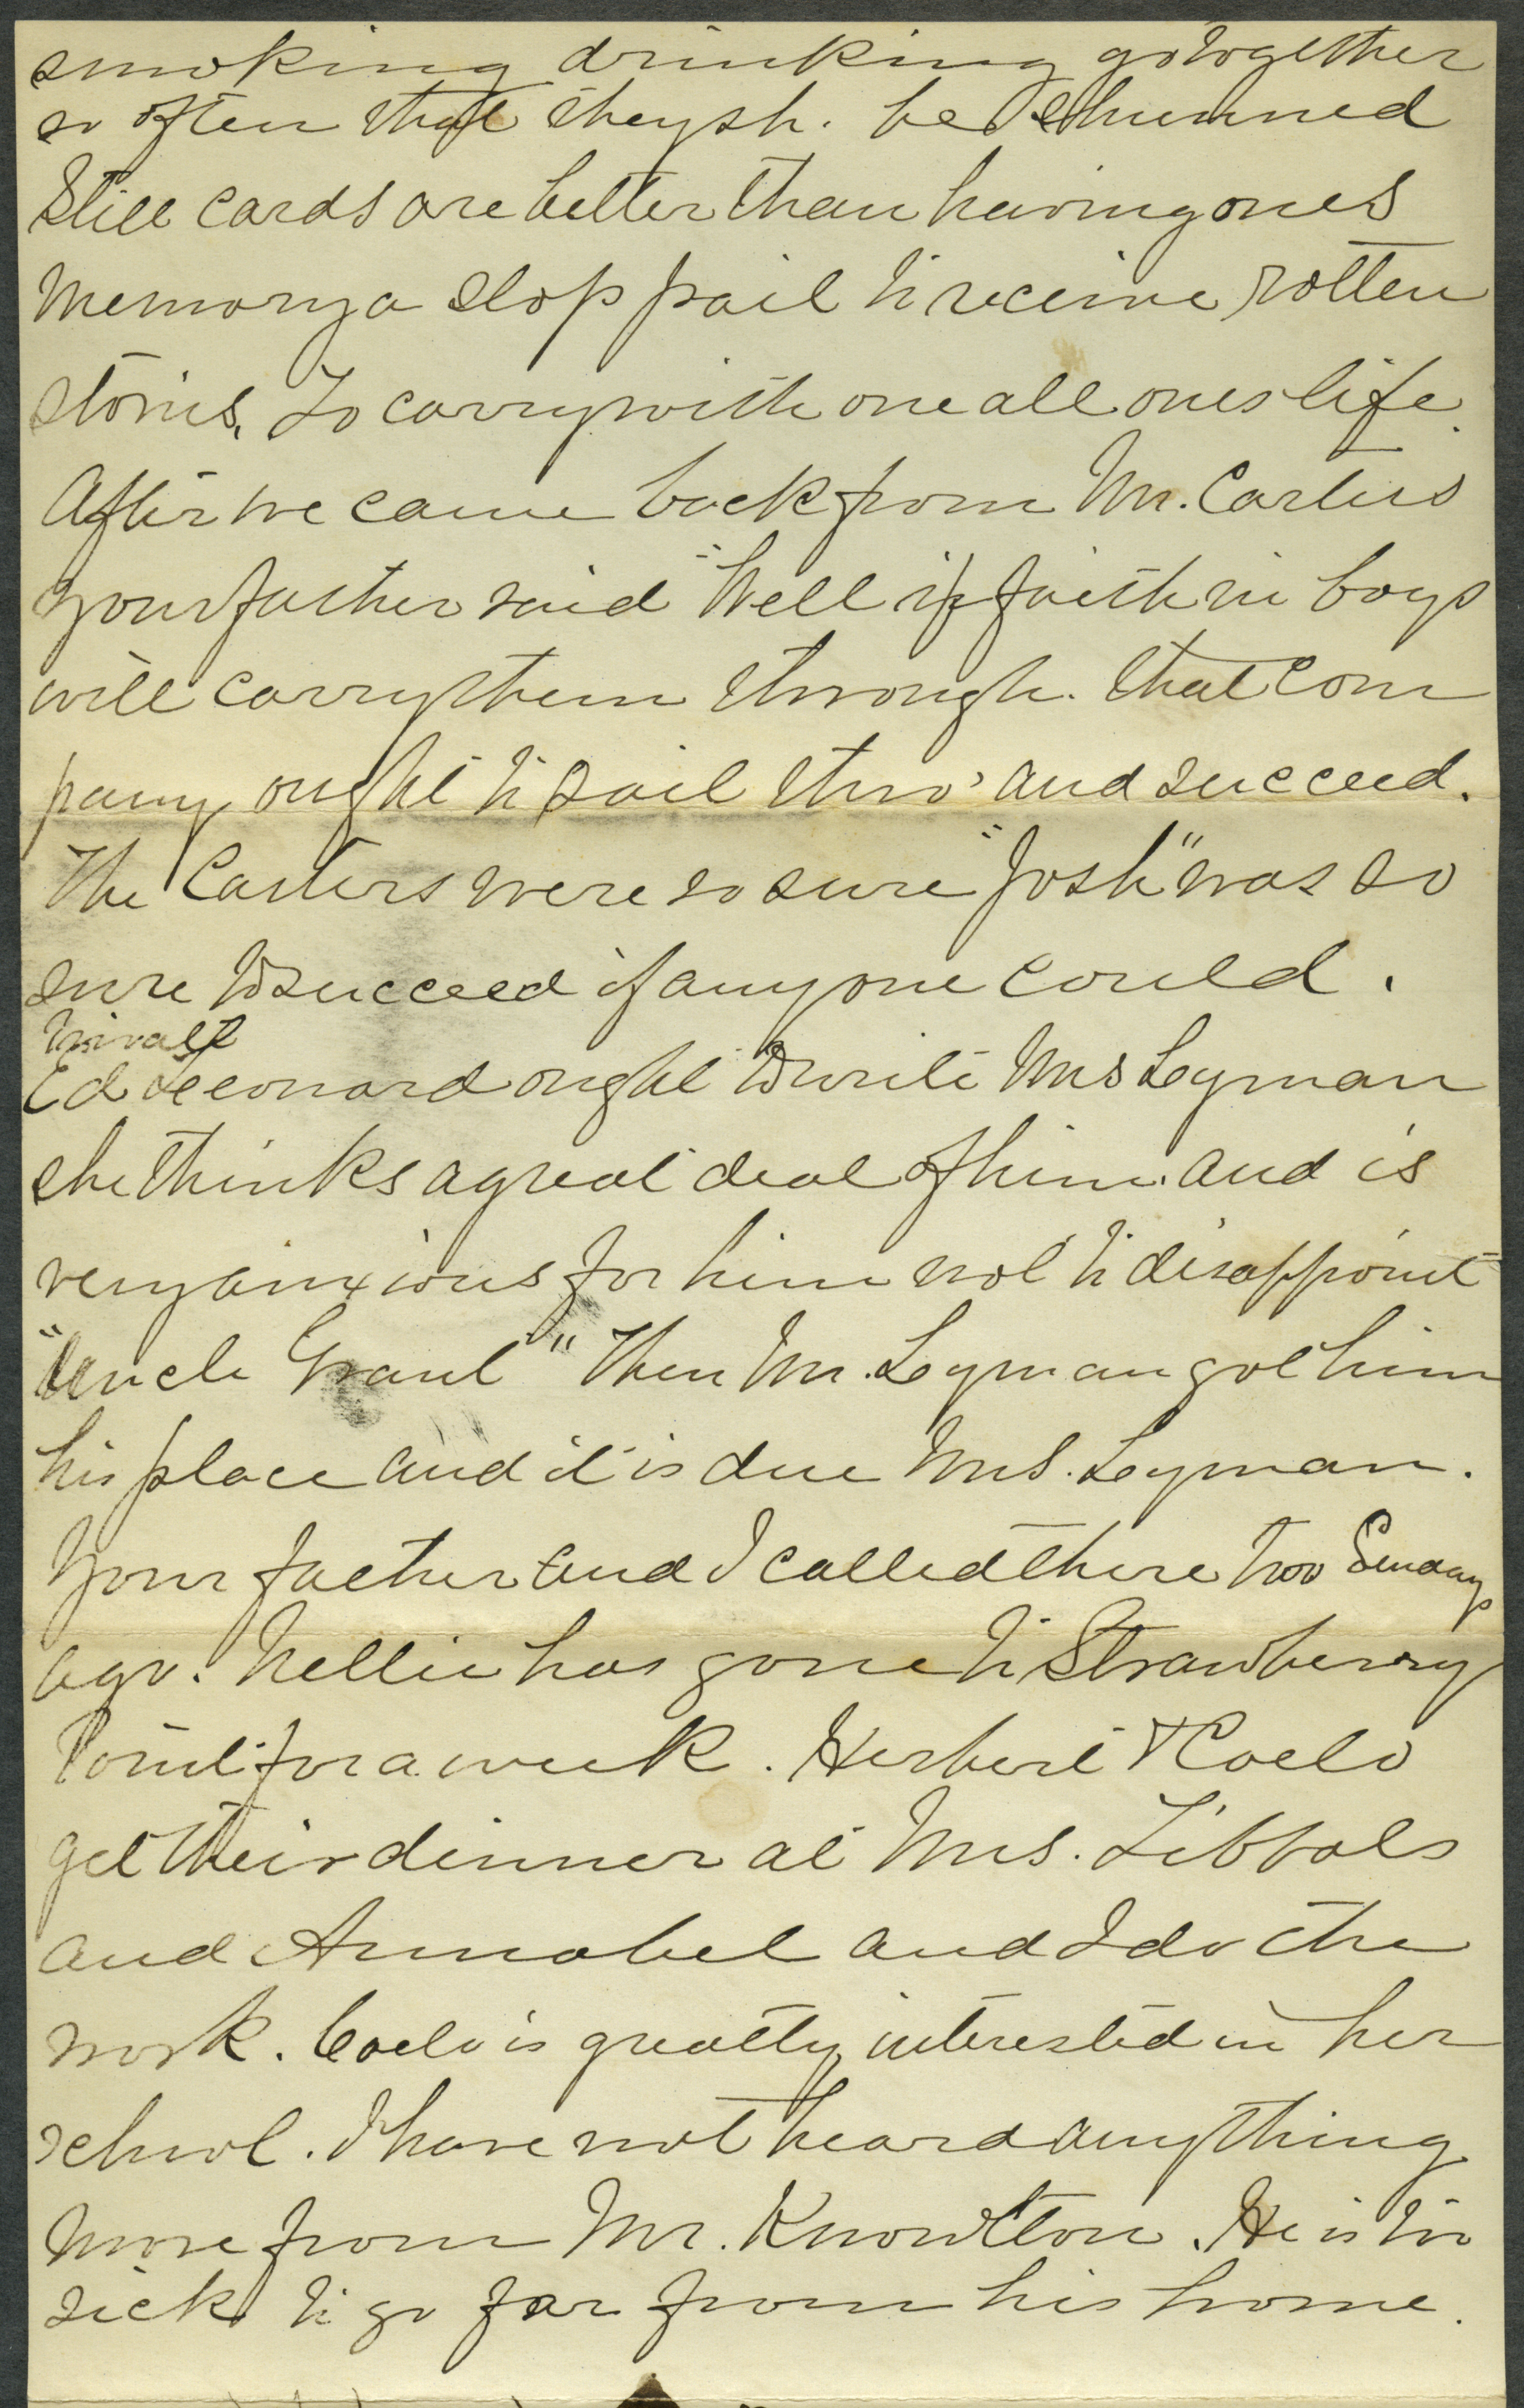 smoking drinking go together
so often that they sh. be shunned
Still cards are better than having ones
memory a slop pail to receive rotten
stories, to carry with one all ones life.
After we came back from Mr. Carters
your father said "Well if faith in boys
will carry them through. that com
pany ought to sail thro' and succeed.
The Carters were so sure "Josh" was so
sure to succeed if anyone could.
Ed Leonard ought to write Mrs Leyman
she thinks a great deal of him. and is
very anxious for him not to disappoint
"Uncle Grant" Then Mr. Leyman got him
his place and it is due Mrs. Leyman.
Your father and I called there two Sundays
ago. Nellie has gone to Strawberry
Point for a week. Herbert & Coelo
get their dinner at Mrs. Tibbals
and Annabel and I do the
work. Coelo is greatly interested in her
school. I have not heard anything
more from Mr. Knowlton. He is too
sick to go far from his home.